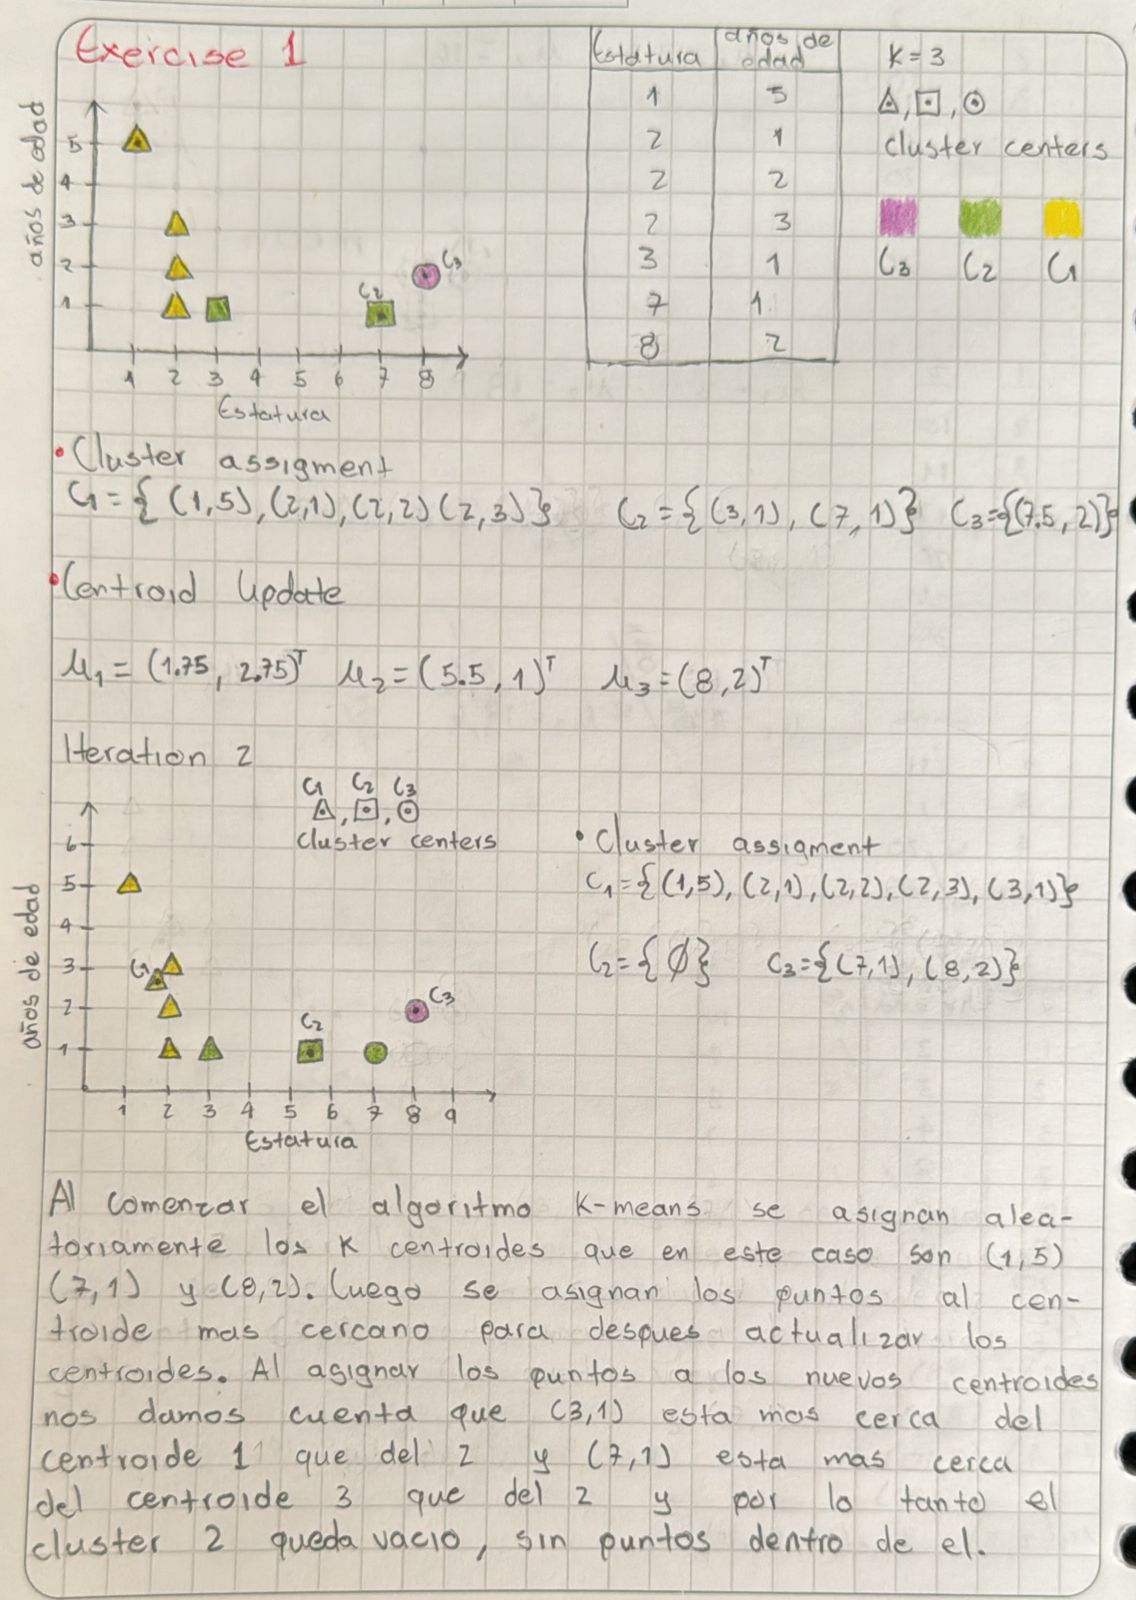 Exercise 1
Estatura años de edad
1 5
2 1
2 2
2 3
3 1
7 1
8 2
K = 3
cluster centers
C3 C2 C1
años de edad
5
4
3
2
1
C2
C3
1 2 3 4 5 6 7 8
Estatura
• Cluster assigment
C1 = { (1,5), (2,1), (2,2) (2,3) } C2 = { (3,1), (7,1) } C3 = {(7.5, 2)}
• Centroid Update
μ1 = (1.75, 2.75)ᵀ μ2 = (5.5, 1)ᵀ μ3 = (8,2)ᵀ
Iteration 2
C1 C2 C3
cluster centers
años de edad
6
5
4
3
2
1
C1
C2
C3
1 2 3 4 5 6 7 8 9
Estatura
• Cluster assigment
C1 = { (1,5), (2,1), (2,2), (2,3), (3,1) }
C2 = { ∅ } C3 = { (7,1), (8,2) }
Al comenzar el algoritmo K-means se asignan alea-
toriamente los K centroides que en este caso son (1,5)
(7,1) y (8,2). Luego se asignan los puntos al cen-
troide mas cercano para despues actualizar los
centroides. Al asignar los puntos a los nuevos centroides
nos damos cuenta que (3,1) esta mas cerca del
centroide 1 que del 2 y (7,1) esta mas cerca
del centroide 3 que del 2 y por lo tanto el
cluster 2 queda vacio, sin puntos dentro de el.